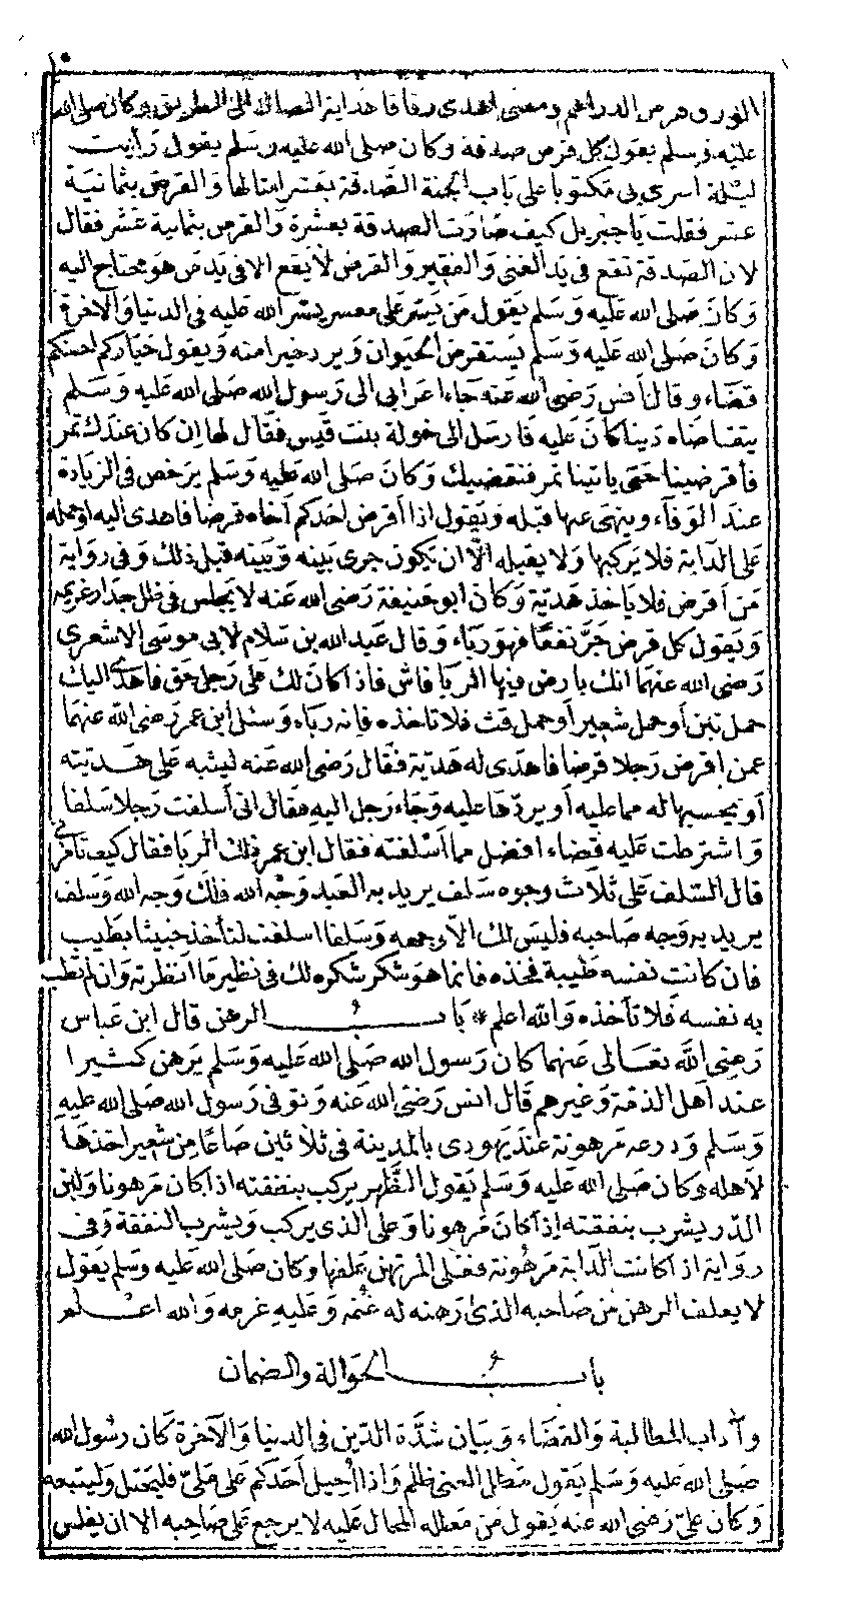 ١٠
الورق وقرض الدراهم ومعنى اهدى زقاقا هداية الضال الى الطريق وكان صلى الله
عليه وسلم يقول كل قرض صدقة وكان صلى الله عليه وسلم يقول رأيت
ليلة اسرى بى مكتوبا على باب الجنة الصدقة بعشر امثالها والقرض بثمانية
عشر فقلت يا جبريل كيف صارت الصدقة بعشرة والقرض بثمانية عشر فقال
لان الصدقة تقع فى يد الغنى والفقير والقرض لا يقع الا فى يد من هو محتاج اليه
وكان صلى الله عليه وسلم يقول من يسر على معسر يسر الله عليه فى الدنيا والآخرة
وكان صلى الله عليه وسلم يستقرض الحيوان ويرد خيرا منه ويقول خياركم احسنكم
قضاء وقال أنس رضى الله عنه جاء اعرابى الى رسول الله صلى الله عليه وسلم
يتقاضاه دينا كان عليه فارسل الى خولة بنت قيس فقال لها ان كان عندك تمر
فأقرضينا حتى ياتينا تمر فنقضيك وكان صلى الله عليه وسلم يرخص فى الزيادة
عند الوفاء وينهى عنها قبله ويقول اذا أقرض احدكم أخاه قرضا فاهدى اليه اوحمله
على الدابة فلا يركبها ولا يقبله الا ان يكون جرى بينه وبينه قبل ذلك وفى رواية
من أقرض فلا ياخذ هدية وكان ابو حنيفة رضى الله عنه لا يجلس فى ظل جدار غريمه
ويقول كل قرض جر نفعا فهو رباء وقال عبد الله بن سلام لابى موسى الاشعرى
رضى الله عنهما انك بارض فيها الربا فاش فاذا كان لك على رجل حق فاهدى اليك
حمل تبن أو حمل شعير أو حمل قت فلا تاخذه فانه رباء وسئل ابن عمر رضى الله عنهما
عمن اقرض رجلا قرضا فاهدى له هدية فقال رضى الله عنه ليثبه على هديته
أو يحسبها له مما عليه أو يردها عليه وجاء رجل اليه فقال انى أسلفت رجلا سلفا
واشترطت عليه قضاء افضل مما أسلفته فقال ابن عمر ذلك الربا فقال كيف تامرنى
قال السلف على ثلاث وجوه سلف يريد به العبد وجه الله فلك وجه الله وسلف
يريد به وجه صاحبه فليس لك الا وجهه وسلفا اسلفت لتأخذ خبيثا بطيب
فان كانت نفسه طيبة فخذه فانما هو شكر شكره لك فى نظير ما انظرته وان لم تطب
به نفسه فلا تأخذه والله اعلم * باب الرهن قال ابن عباس
رضى الله تعالى عنهما كان رسول الله صلى الله عليه وسلم يرهن كثيرا
عند أهل الذمة وغيرهم قال انس رضى الله عنه وتوفى رسول الله صلى الله عليه
وسلم ودرعه مرهونة عند يهودى بالمدينة فى ثلاثين صاعا من شعير اخذها
لأهله وكان صلى الله عليه وسلم يقول الظهر يركب بنفقته اذا كان مرهونا ولبن
الدر يشرب بنفقته إذا كان مرهونا وعلى الذى يركب ويشرب النفقة وفى
رواية اذا كانت الدابة مرهونة فعلى المرتهن علفها وكان صلى الله عليه وسلم يقول
لا يغلق الرهن من صاحبه الذى رهنه له غنمه وعليه غرمه والله اعلم
باب الحوالة والضمان
وآداب المطالبة والقضاء وبيان شدة الدين فى الدنيا والآخرة كان رسول الله
صلى الله عليه وسلم يقول مطل الغنى ظلم واذا أحيل أحدكم على ملئ فليحتل وليتبعه
وكان على رضى الله عنه يقول من مطله المحال عليه لا يرجع على صاحبه الا ان يفلس